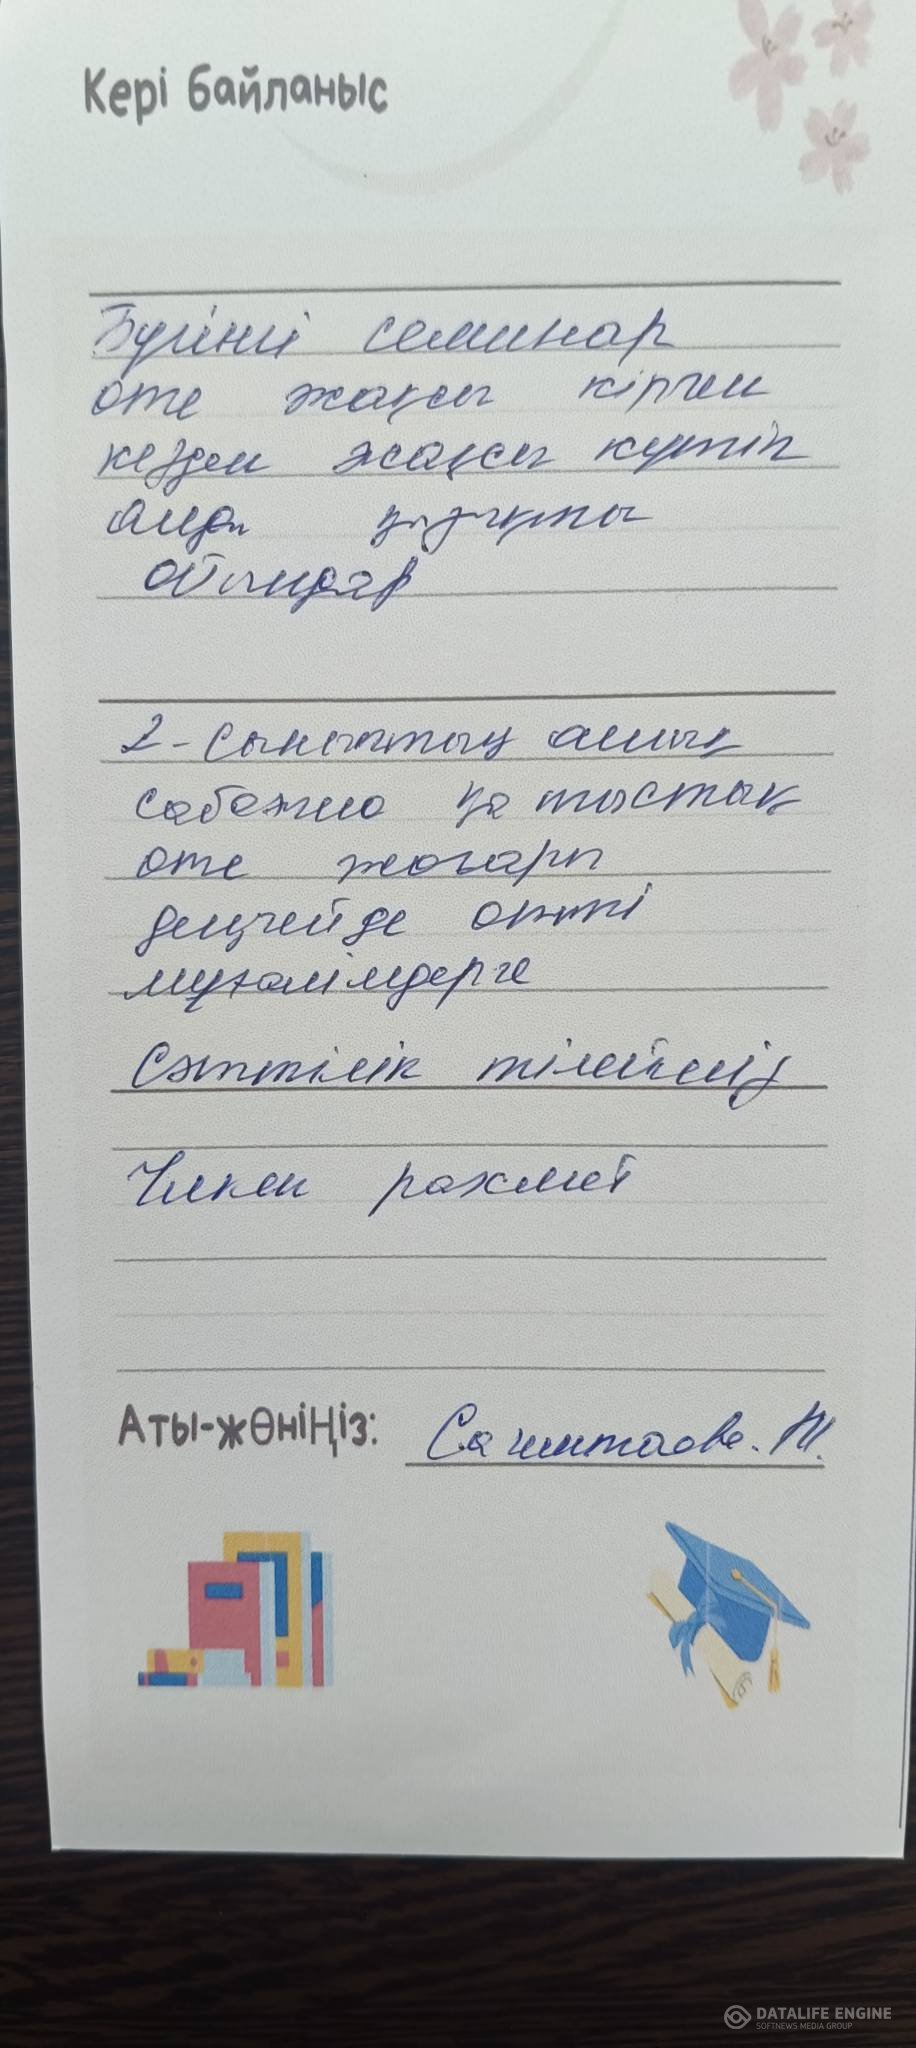 Кері байланыс
Бүгінгі семинар
өте жақсы кірген
кезден жақсы күтіп
алды қызықты
ойындар
2-сыныптың ашық
сабағына қатыстық
өте жоғары
деңгейде өтті
мұғалімдерге
Сәттілік тілейміз
Үлкен рахмет
Аты-жӨніҢіз:
DATALIFE ENGINE
SOFTNEWS MEDIA GROUP